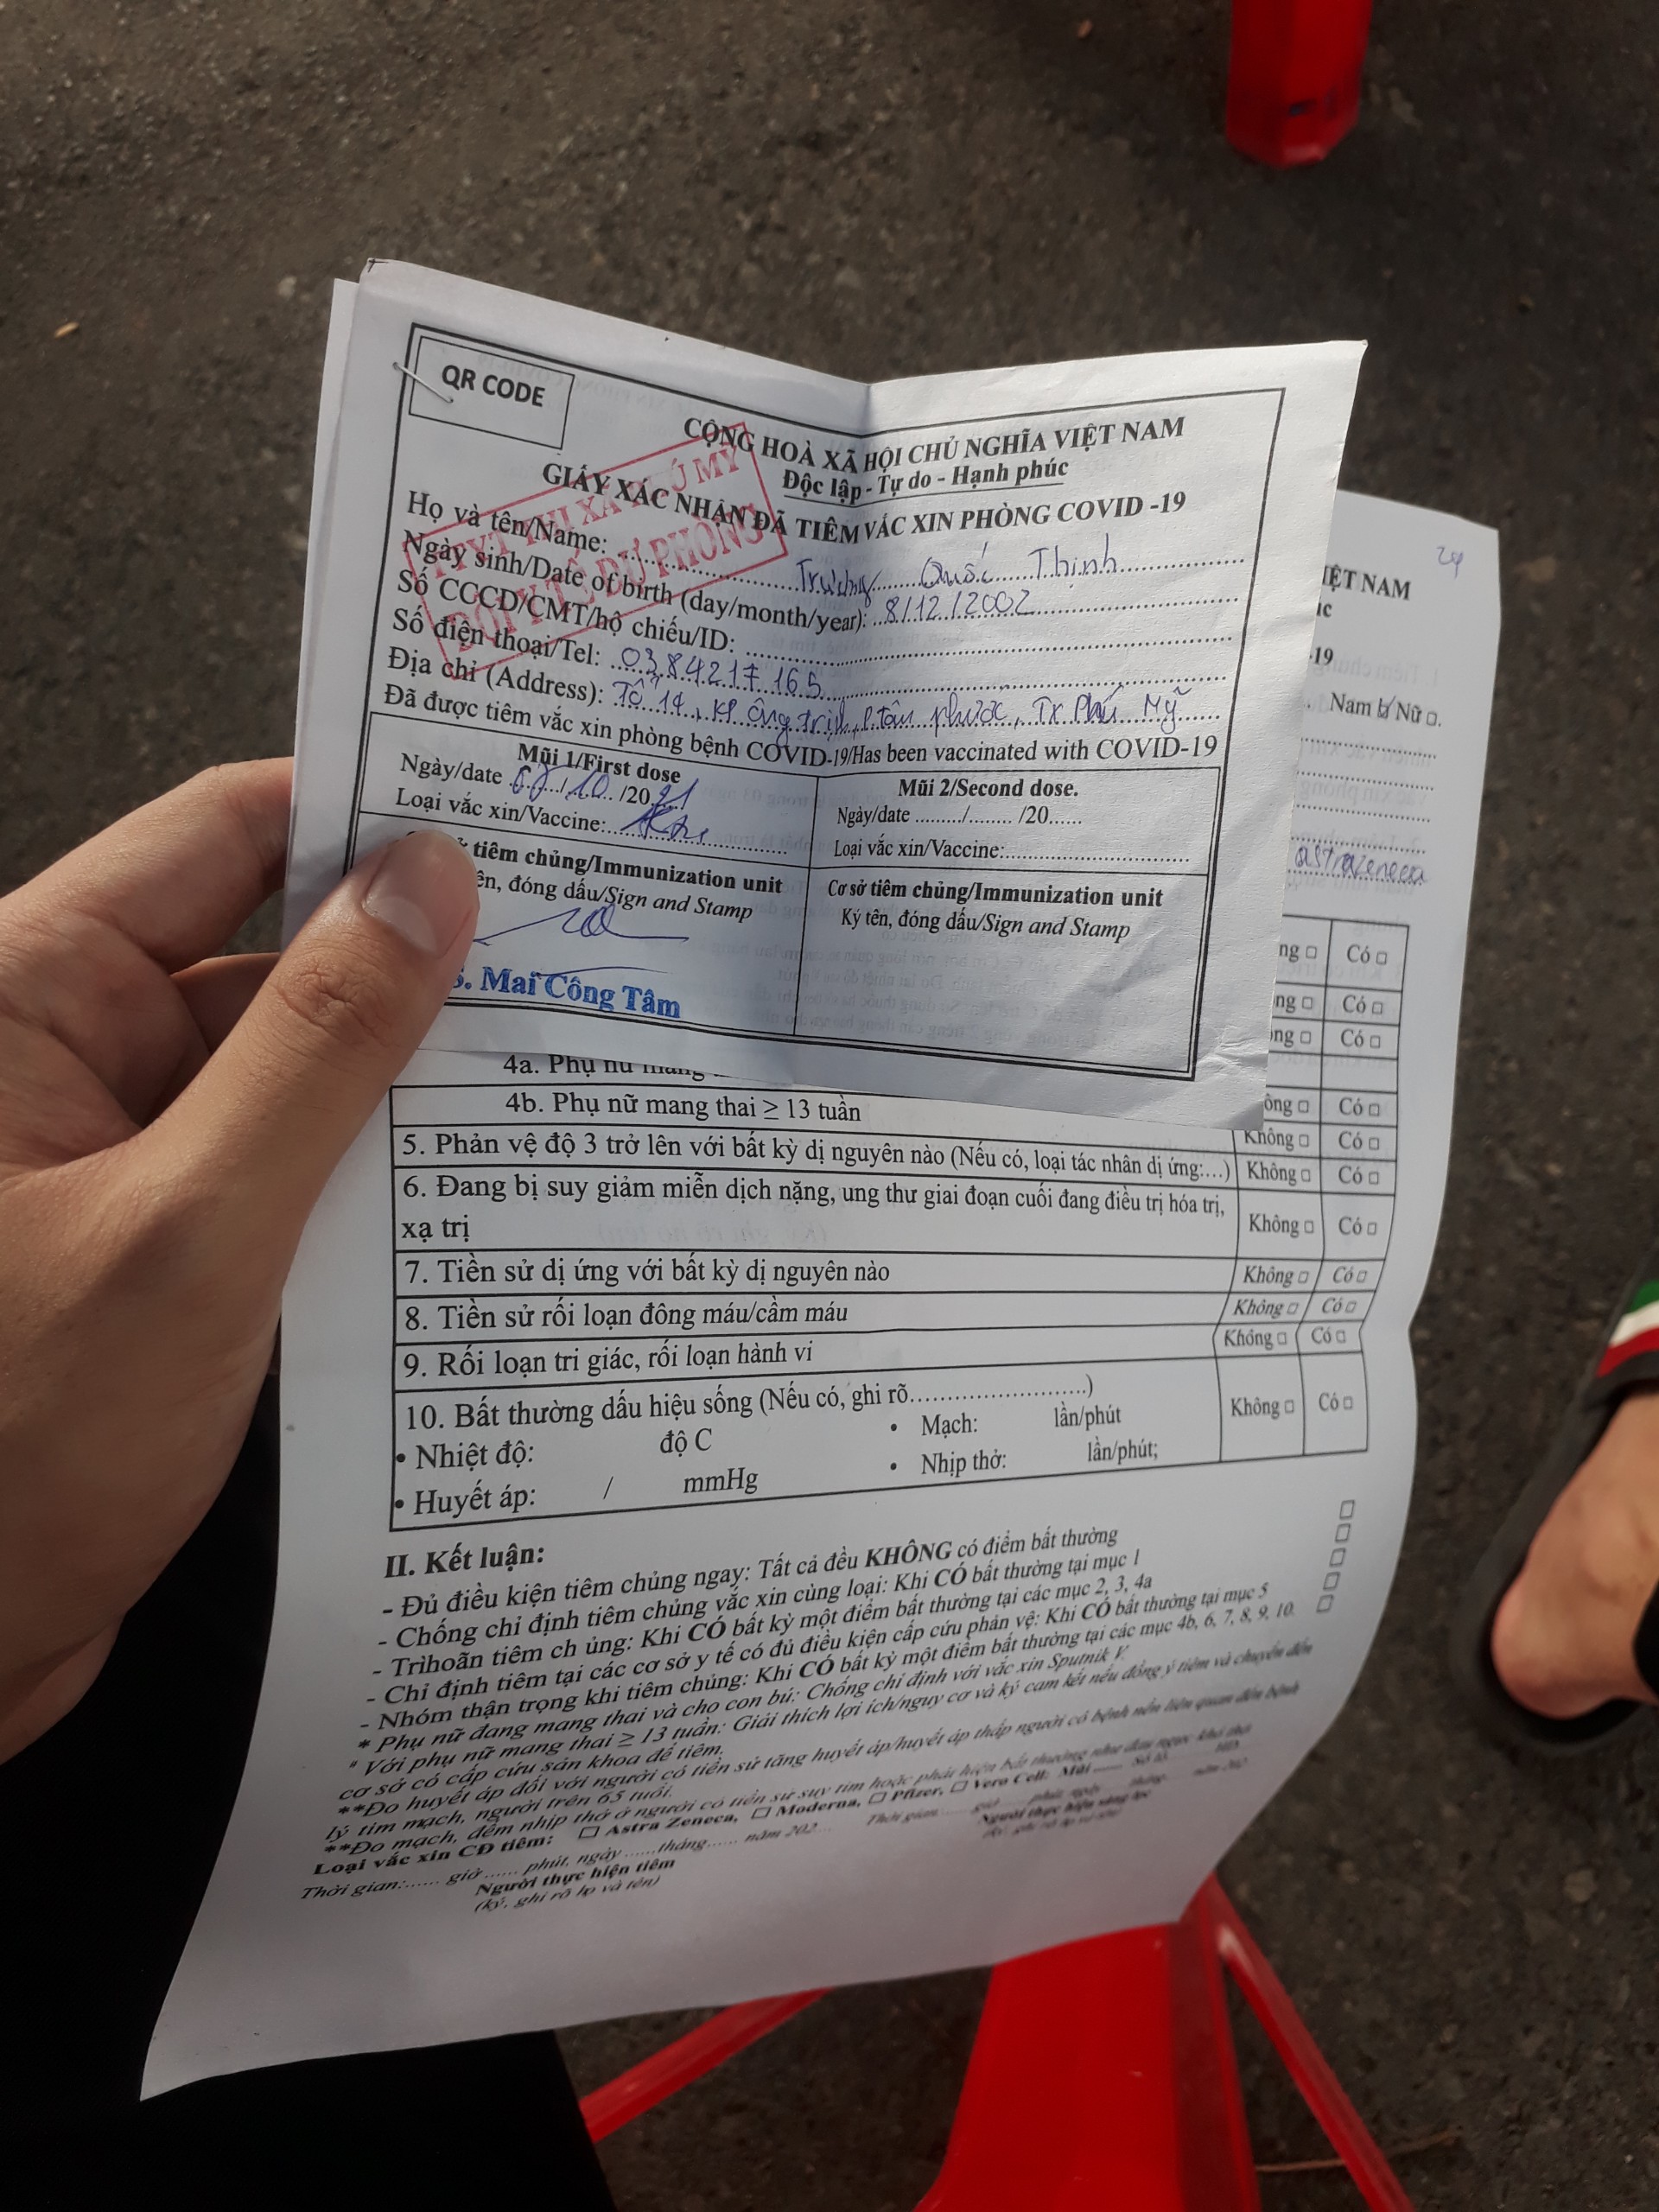 QR CODE
CỘNG HOÀ XÃ HỘI CHỦ NGHĨA VIỆT NAM
Độc lập - Tự do - Hạnh phúc
GIẤY XÁC NHẬN ĐÃ TIÊM VẮC XIN PHÒNG COVID -19
Họ và tên/Name: Trương Quốc Thịnh
Ngày sinh/Date of birth (day/month/year): 8/12/2002
Số CCCD/CMT/hộ chiếu/ID:
Số điện thoại/Tel: 0384217165
Địa chỉ (Address): Tổ 14, KP Ông trịnh, P tân phước, Tx Phú Mỹ
Đã được tiêm vắc xin phòng bệnh COVID-19/Has been vaccinated with COVID-19
Mũi 1/First dose
Ngày/date /10 /2021
Loại vắc xin/Vaccine:
tiêm chủng/Immunization unit
ên, đóng dấu/Sign and Stamp
Mai Công Tâm
Mũi 2/Second dose.
Ngày/date ........./........ /20......
Loại vắc xin/Vaccine:
Cơ sở tiêm chủng/Immunization unit
Ký tên, đóng dấu/Sign and Stamp
THỊ XÃ PHÚ MỸ
ĐỘI Y TẾ DỰ PHÒNG
IỆT NAM
-19
Nam Nữ
astrazeneca
ng Có
ng Có
ông Có
4a. Phụ nữ mang
4b. Phụ nữ mang thai ≥ 13 tuần
ông Có
Không Có
5. Phản vệ độ 3 trở lên với bất kỳ dị nguyên nào (Nếu có, loại tác nhân dị ứng:…) Không Có
6. Đang bị suy giảm miễn dịch nặng, ung thư giai đoạn cuối đang điều trị hóa trị,
xạ trị Không Có
7. Tiền sử dị ứng với bất kỳ dị nguyên nào Không Có
8. Tiền sử rối loạn đông máu/cầm máu Không Có
9. Rối loạn tri giác, rối loạn hành vi Không Có
10. Bất thường dấu hiệu sống (Nếu có, ghi rõ..........................) Không Có
• Nhiệt độ: độ C • Mạch: lần/phút
• Huyết áp: / mmHg • Nhịp thở: lần/phút;
II. Kết luận:
- Đủ điều kiện tiêm chủng ngay: Tất cả đều KHÔNG có điểm bất thường
- Chống chỉ định tiêm chủng vắc xin cùng loại: Khi CÓ bất thường tại mục 1
- Trì hoãn tiêm ch ủng: Khi CÓ bất kỳ một điểm bất thường tại các mục 2, 3, 4a
- Chỉ định tiêm tại các cơ sở y tế có đủ điều kiện cấp cứu phản vệ: Khi CÓ bất thường tại mục 5
- Nhóm thận trọng khi tiêm chủng: Khi CÓ bất kỳ một điểm bất thường tại các mục 4b, 6, 7, 8, 9, 10.
* Phụ nữ đang mang thai và cho con bú: Chống chỉ định với vắc xin Sputnik V.
* Với phụ nữ mang thai ≥ 13 tuần: Giải thích lợi ích/nguy cơ và ký cam kết nếu đồng ý tiêm và chuyển đến
cơ sở có cấp cứu sản khoa để tiêm.
**Đo huyết áp đối với người có tiền sử tăng huyết áp/huyết áp thấp người có bệnh nền liên quan đến bệnh
lý tim mạch, người trên 65 tuổi.
**Đo mạch, đếm nhịp thở ở người có tiền sử suy tim hoặc phát hiện bất thường như đau ngực khó thở
Loại vắc xin CĐ tiêm: Astra Zeneca, Moderna, Pfizer, Vero Cell: Mũi
Thời gian:...... giờ ...... phút, ngày ......tháng...... năm 202...
Người thực hiện tiêm
(ký, ghi rõ họ và tên)